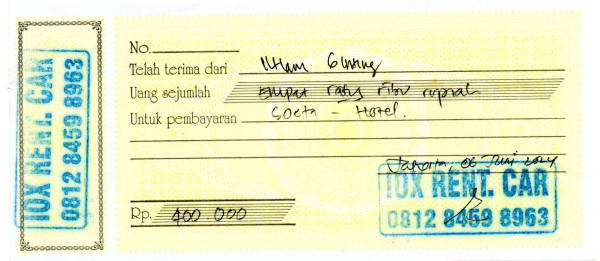 IOX RENT. CAR
0812 8459 8963
No.
Telah terima dari
Uang sejumlah Empat ratus ribu rupiah
Untuk pembayaran Soeta - Hotel.
Jakarta, 06 Juni 2024
Rp. 400 000
IOX RENT. CAR
0812 8459 8963